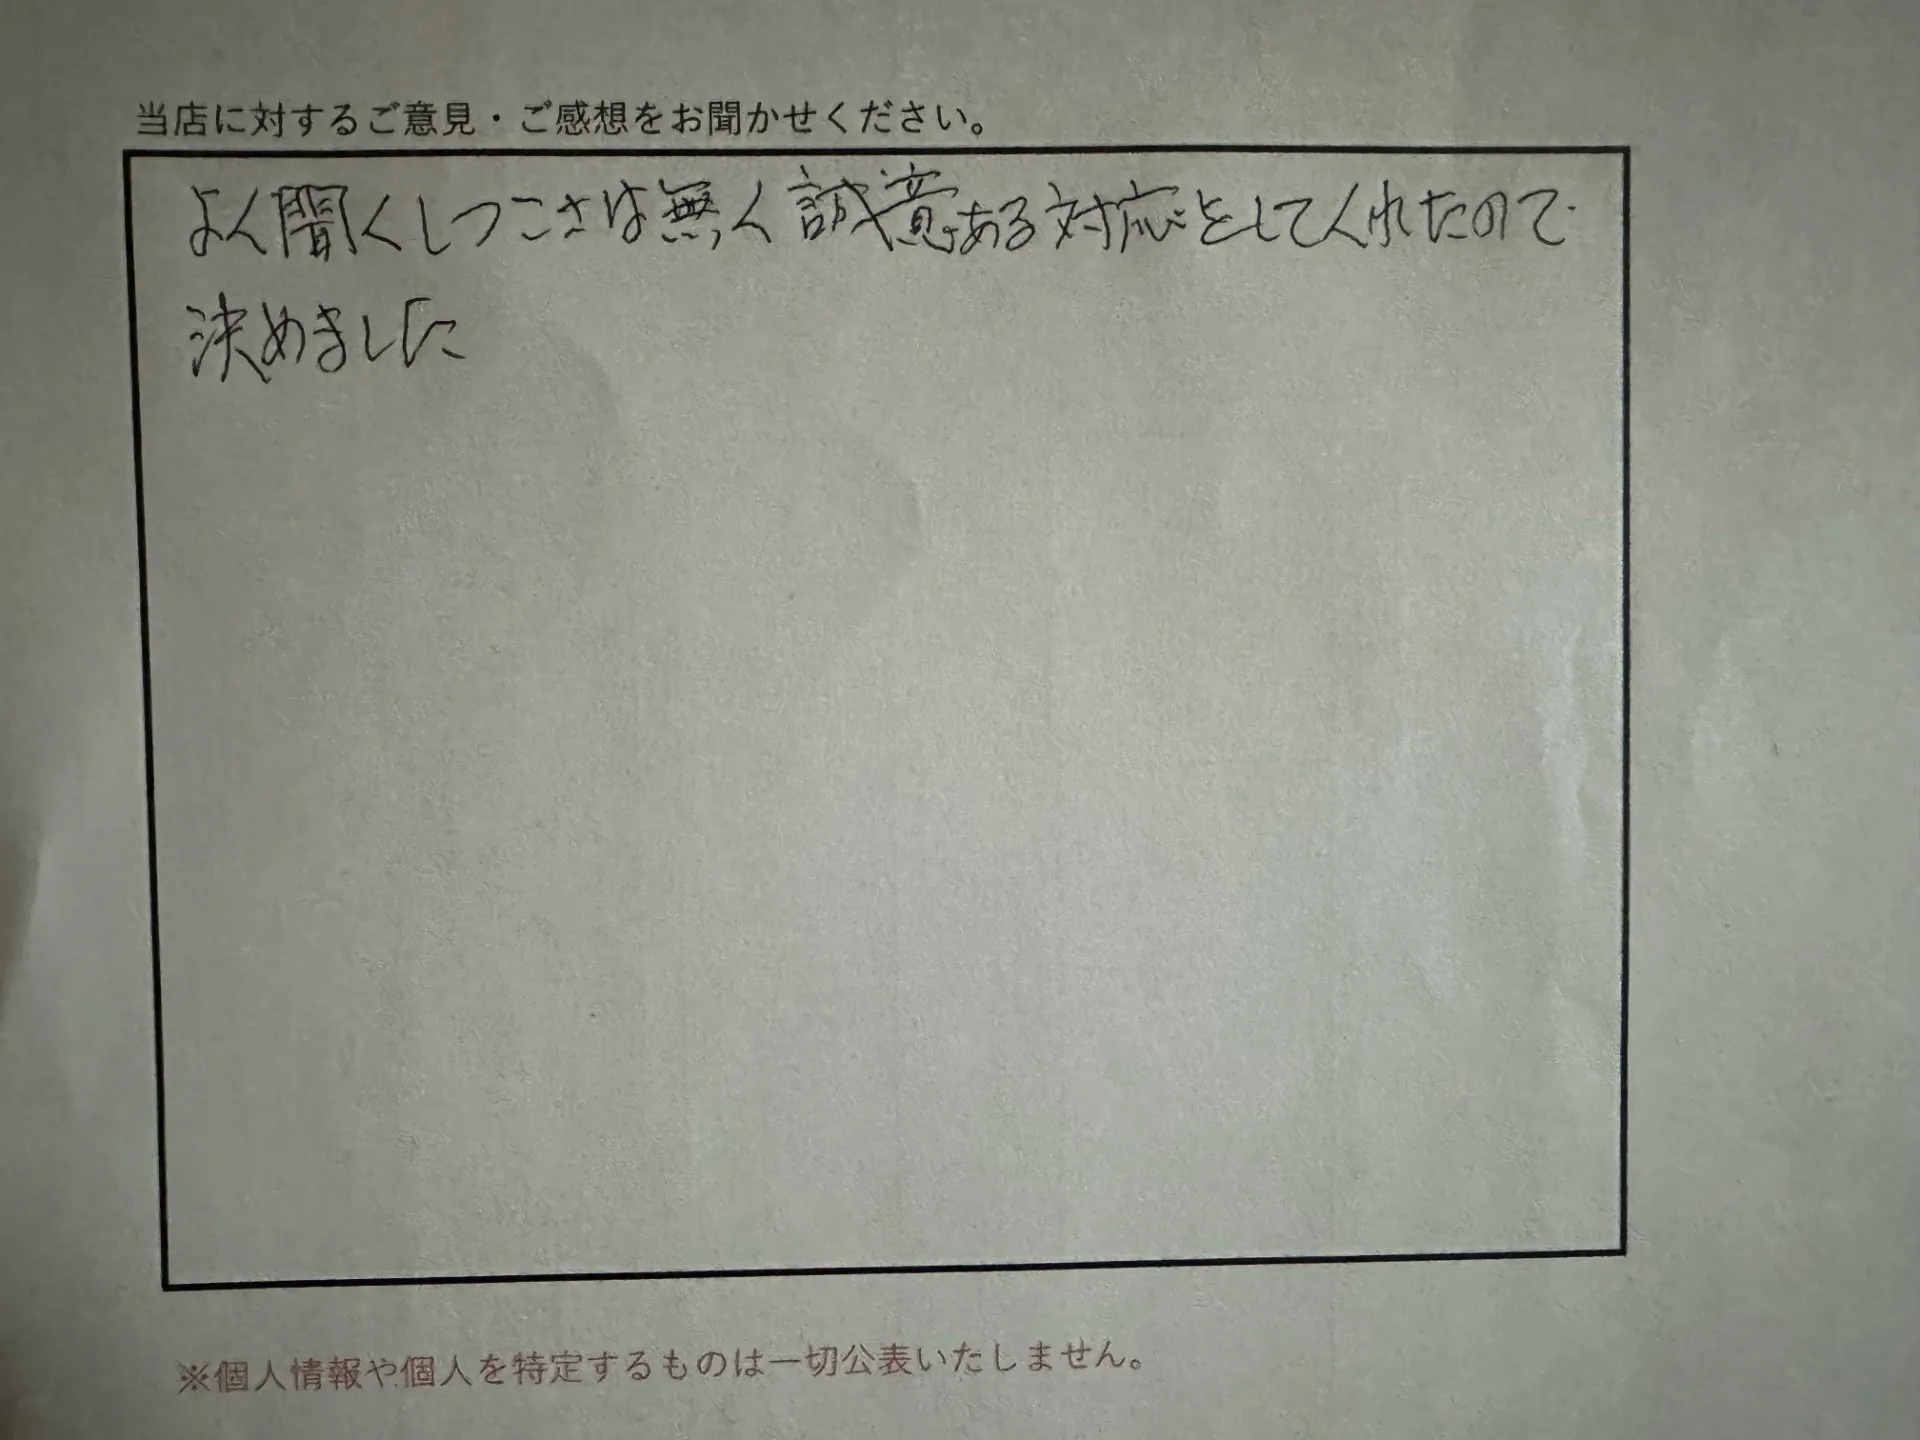 当店に対するご意見・ご感想をお聞かせください。
よく聞くしつこさは無く誠意ある対応をしてくれたので
決めました
※個人情報や個人を特定するものは一切公表いたしません。